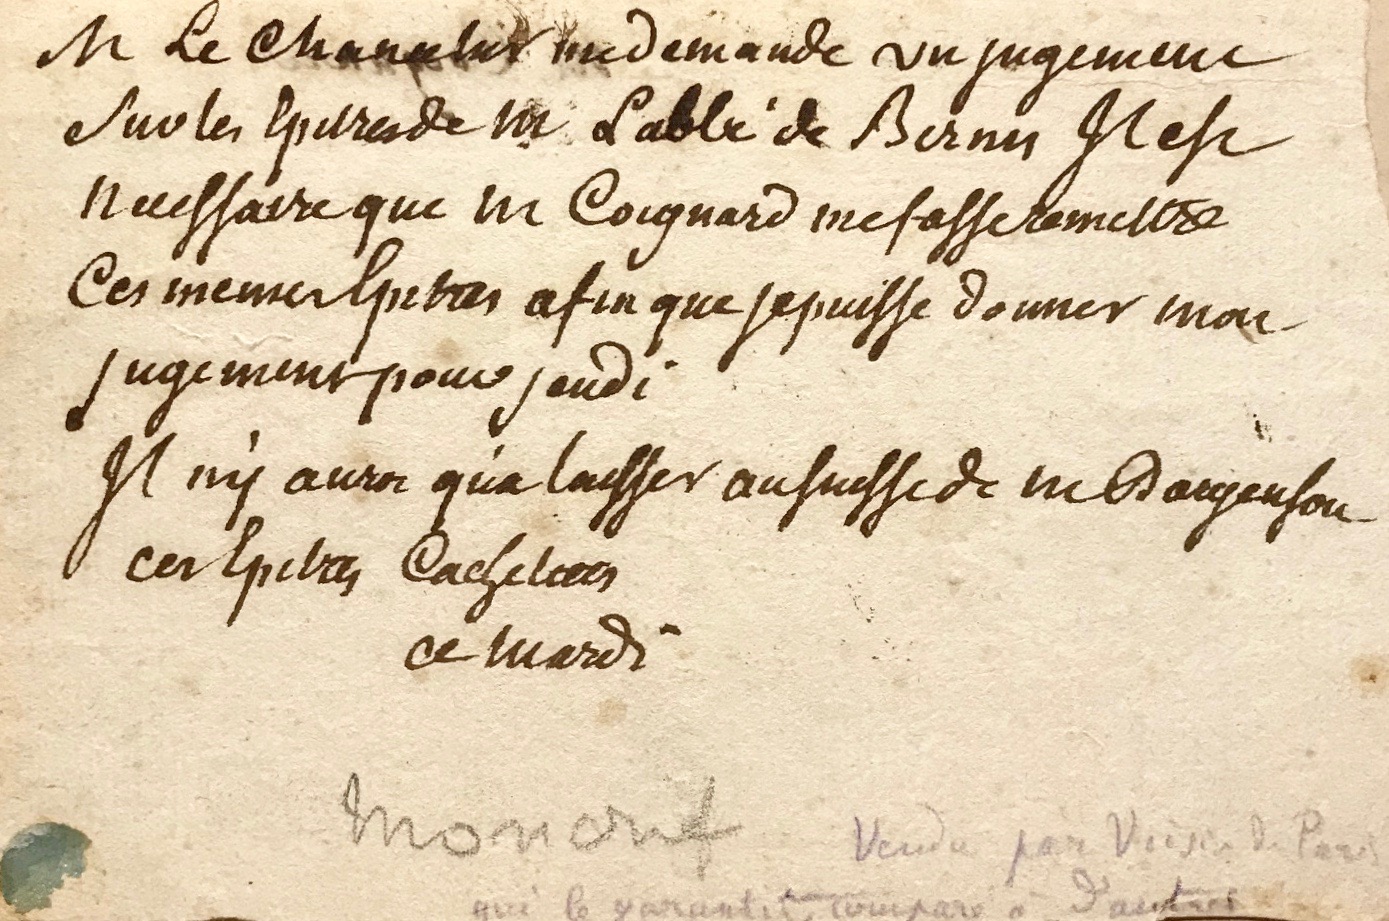 M Le Chancelier me demande un jugement
sur les Epitres de M Labbé de Bernis Il est
necessaire que M Coignard me fasse remettre
Ces memes Epitres afin que je puisse donner mon
jugement pour jeudi
Il n'y aura qu'a laisser au suisse de M Dargenson
ces Epitres Cachetees
ce mardi
Moncrif
Vendu par Voisin de Paris
qui le garantit, comparé à d'autres